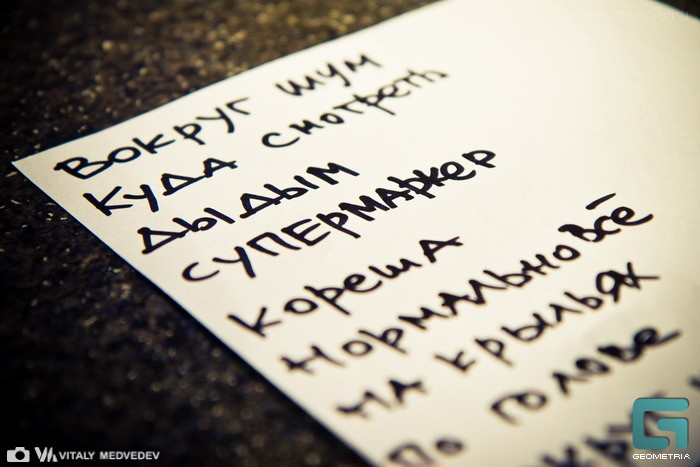 ВОКРУГ ШУМ
КУДА СМОТРЕТЬ
ДЫДЫМ
СУПЕРМАРКЕР
КОРЕША
НОРМАЛЬНО ВСЁ
НА КРЫЛЬЯХ
ПО ГОЛОВЕ
VITALY MEDVEDEV
GEOMETRIA